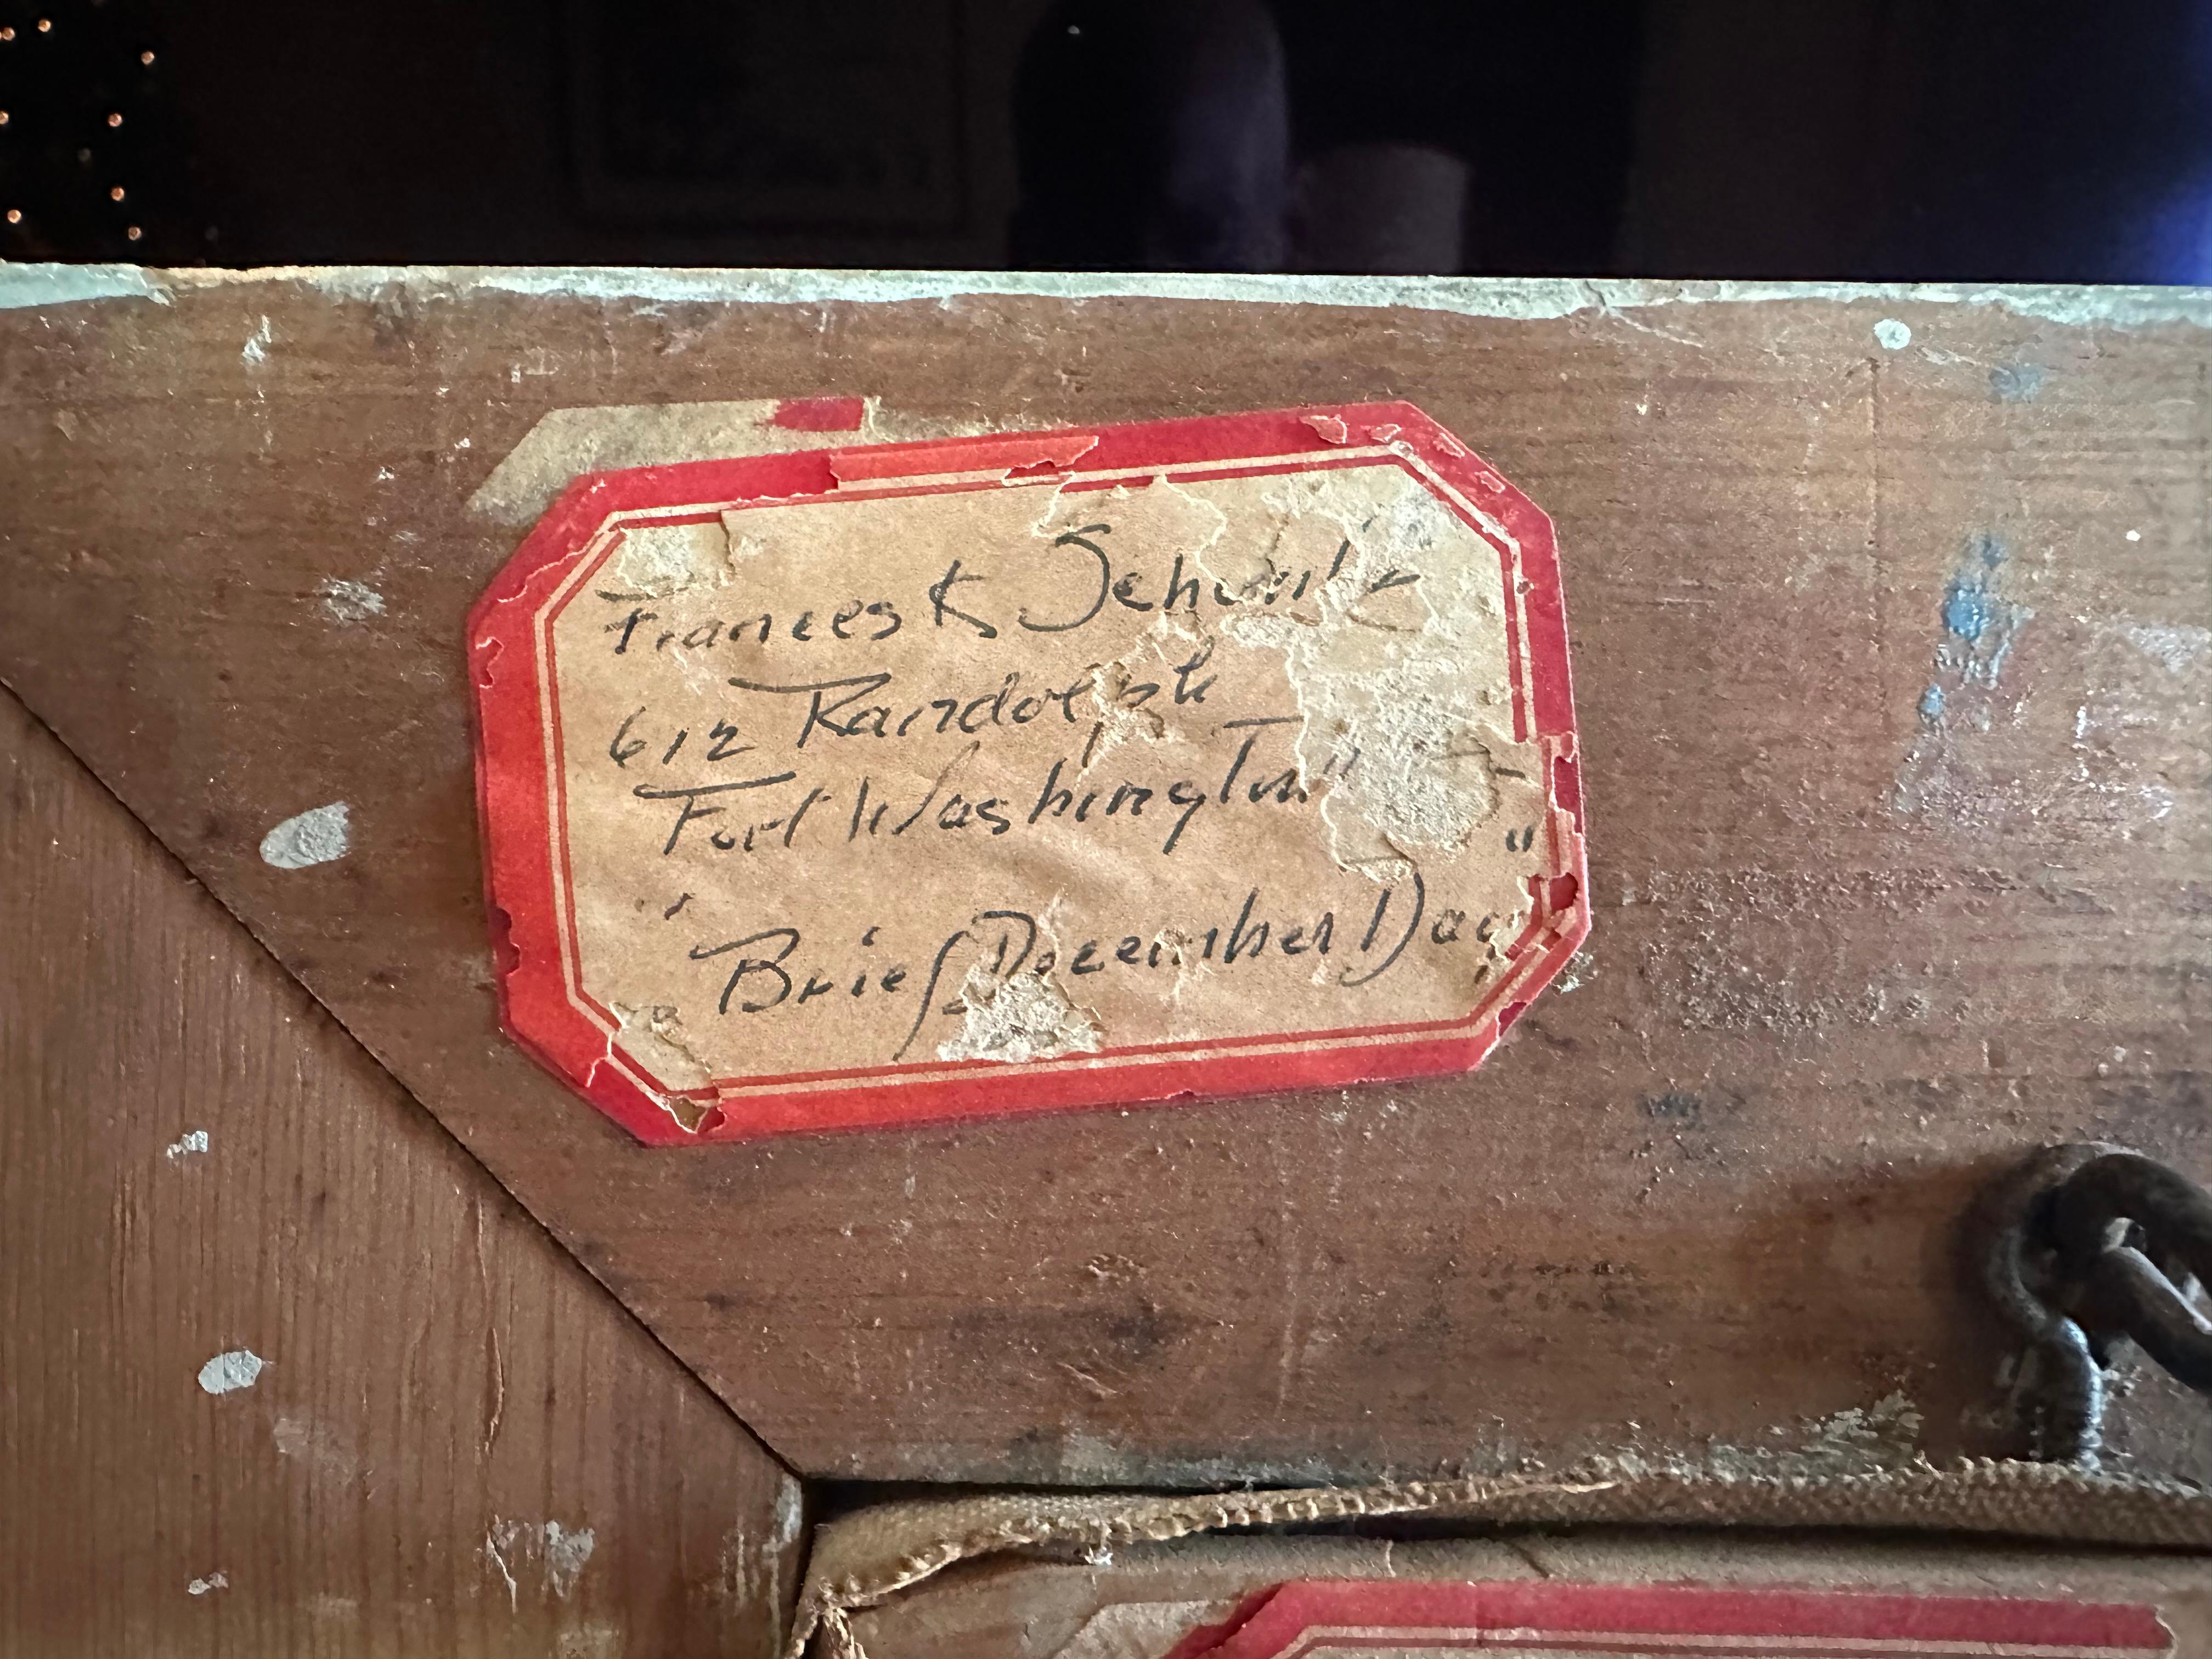 Frances K Schultz
612 Randolph
Fort Washington
"Brief December Day"